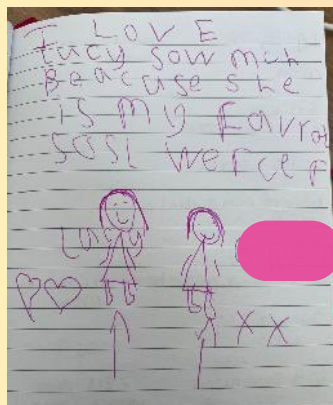 I LOVE
Lucy sow mch
Beacause she
is my Favrar
SOSL wercer
Lucy
X X